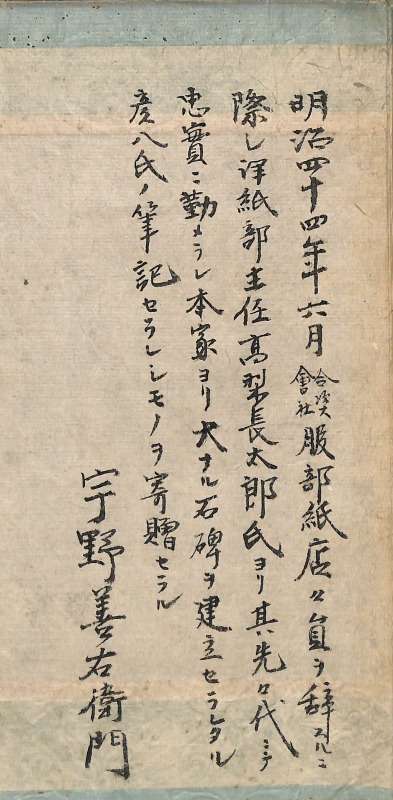 明治四十四年六月合資會社服部紙店々員ヲ辞スルニ
際し洋紙部主任高梨長太郎氏ヨリ其先々代ニテ
忠實ニ勤メラレ本家ヨリ大ナル石碑ヲ建立セラレタル
彦八氏ノ筆記セラレシモノヲ寄贈セラル
宇野善右衛門